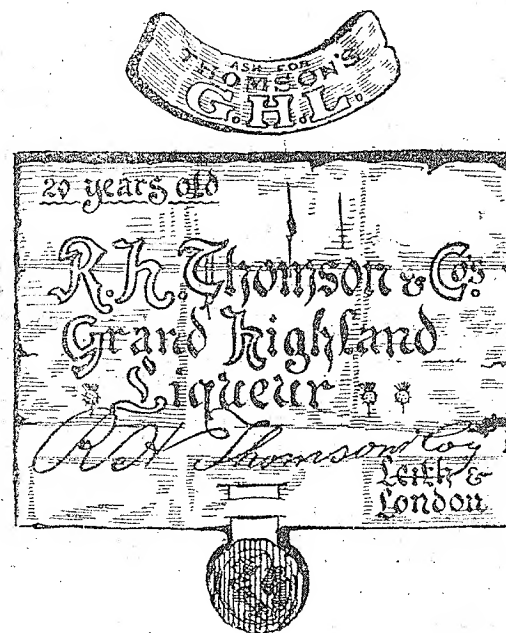 ASK FOR
THOMSON'S
G.H.L.
20 years old
R.H. Thomson & Co's
Grand Highland
Liqueur
R H Thomson & Coy
Leith &
London